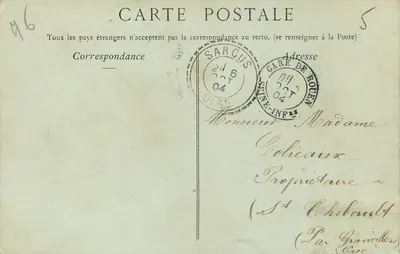 CARTE POSTALE
Tous les pays étrangers n'acceptent pas la correspondance au recto, (se renseigner à la Poste)
Correspondance
Adresse
SARCUS
6
OCT
04
OISE
GARE DE ROUEN
OCT
04
SEINE-INF
Monsieur Madame
Propriétaire a
St Thibault
(Par Grandvilliers
Oise)
5